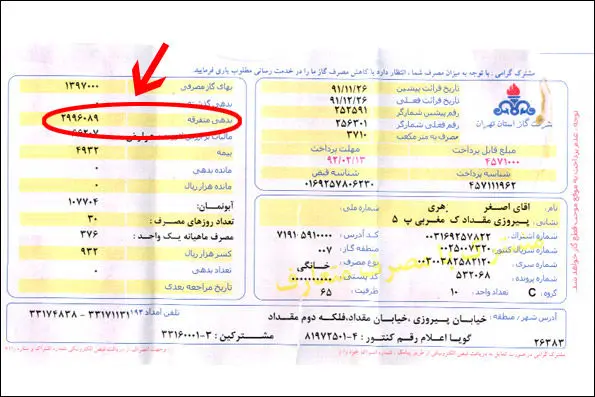 مشترک گرامی : با توجه به میزان مصرف شما، انتظار دارد با کاهش مصرف گاز ما را در خدمت رسانی مطلوب یاری فرمایید.
شرکت گاز استان تهران
تاریخ قرائت پیشین ۹۱/۱۱/۲۶
تاریخ قرائت فعلی ۹۱/۱۲/۲۶
رقم پیشین شمارگر ۲۵۲۵۹۱
رقم فعلی شمارگر ۲۵۶۳۰۱
مصرف به متر مکعب ۳۷۱۰
مبلغ قابل پرداخت ۴۵۷۱۰۰۰
مهلت پرداخت ۹۲/۰۲/۱۳
شناسه پرداخت ۴۵۷۱۱۱۹۶۲
شناسه قبض ۰۱۶۹۲۵۷۸۰۶۲۳۰
نام: اقای اصغر هری
شماره ملی:
نشانی: پیروزی مقداد ک مغربی پ ۵
شماره اشتراک: ۰۰۳۱۶۹۲۵۷۸۲۲
کد آدرس: ۷۱۹۱۰۵۹۱۰۰۰۰
شماره سریال کنتور: ۰۰۲۵۰۰۷۳۲۰
منطقه گاز: ۰۰۷
شماره سری: ۰۰۳۰۰۳۸۲۵۸۲۱۲۰
نوع مصرف: خانگی
شماره پرونده: ۵۳۲۰۶۸
کد پستی: ۰۰۰۰۰۰۰۰۰۰
گروه: C تعداد واحد: ۱۰
ظرفیت: ۶۵
بهای گاز مصرفی ۱۳۹۷۰۰۰
بدهی متفرقه ۲۹۹۶۰۸۹
بیمه ۴۹۳۲
مانده بدهی ۰
مانده هزار ریال ۰
آبونمان: ۱۰۷۷۰۴
تعداد روزهای مصرف: ۳۰
مصرف ماهیانه یک واحد: ۳۷۶
کسر هزار ریال ۹۳۲
تعداد بدهی ۰
تاریخ مراجعه بعدی
آدرس شهر / منطقه: خیابان پیروزی ،خیابان مقداد،فلکه دوم مقداد
تلفن امداد ۱۹۴ ۳۳۱۷۱۱۳۱ - ۳۳۱۷۴۸۳۸
۲۶۳۸۳ گویا اعلام رقم کنتور: ۴-۸۱۹۷۲۵۰۱ مشترکین: ۳-۳۳۱۶۰۰۰۱